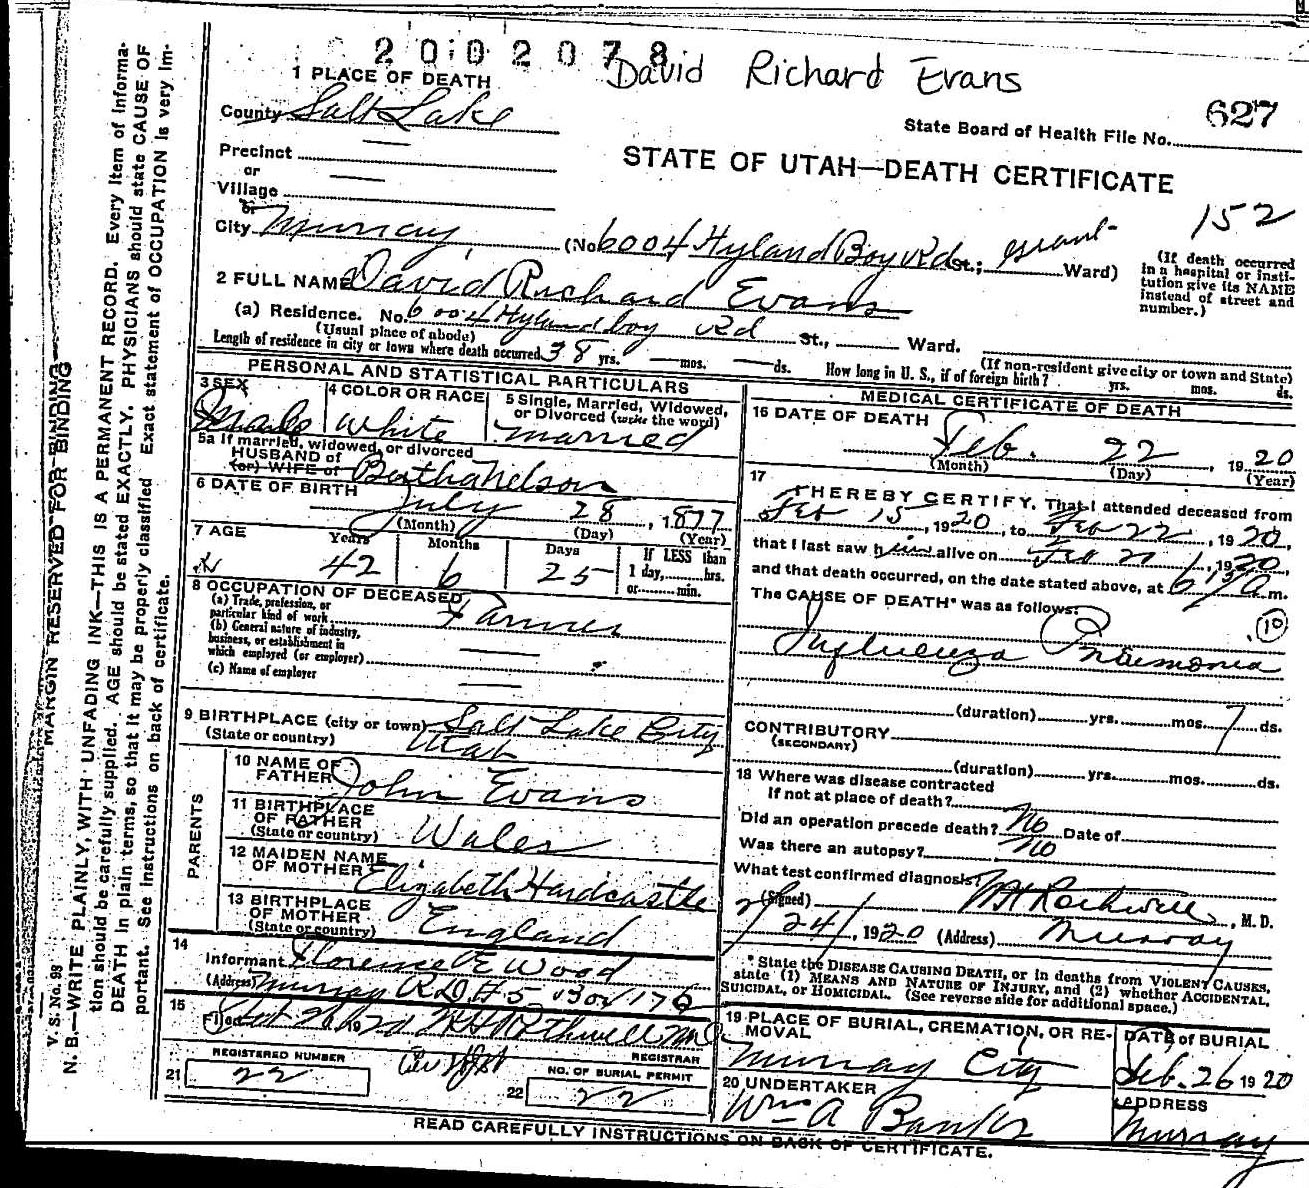 2002078
David Richard Evans
1 PLACE OF DEATH
County Salt Lake
State Board of Health File No. 627
Precinct
or
Village
or
City Murray,
STATE OF UTAH—DEATH CERTIFICATE
152
(No. 6004 Hyland Boy Rd St.; Grant Ward)
(If death occurred in a hospital or institution give its NAME instead of street and number.)
2 FULL NAME David Richard Evans
(a) Residence. No. 6004 Hyland boy Rd St., Ward.
(Usual place of abode)
(If non-resident give city or town and State)
Length of residence in city or town where death occurred 38 yrs. — mos. — ds. How long in U. S., if of foreign birth? yrs. mos. ds.
PERSONAL AND STATISTICAL PARTICULARS
3 SEX Male
4 COLOR OR RACE White
5 Single, Married, Widowed, or Divorced (write the word) Married
5a If married, widowed, or divorced
HUSBAND of
(or) WIFE of Bertha Nelson
6 DATE OF BIRTH July 28, 1877
(Month) (Day) (Year)
7 AGE Years Months Days
42 6 25
If LESS than
1 day, hrs.
or min.
8 OCCUPATION OF DECEASED
(a) Trade, profession, or
particular kind of work Farmer
(b) General nature of industry,
business, or establishment in
which employed (or employer)
(c) Name of employer
9 BIRTHPLACE (city or town) Salt Lake City
(State or country) Utah
PARENTS
10 NAME OF FATHER John Evans
11 BIRTHPLACE OF FATHER
(State or country) Wales
12 MAIDEN NAME OF MOTHER Elizabeth Hardcastle
13 BIRTHPLACE OF MOTHER
(State or country) England
14
Informant Florence E Wood
(Address) Murray R.D. #5 Box 176
15
Filed Feb 26 1920 Rothwell MD
REGISTRAR
REGISTERED NUMBER
21 22
NO. OF BURIAL PERMIT
22 22
MEDICAL CERTIFICATE OF DEATH
16 DATE OF DEATH
Feb. 22, 1920
(Month) (Day) (Year)
17
I HEREBY CERTIFY, That I attended deceased from
Feb 15, 1920, to Feb 22, 1920,
that I last saw him alive on Feb 21, 1920,
and that death occurred, on the date stated above, at a m.
The CAUSE OF DEATH* was as follows:
10
Influenza Pneumonia
(duration) yrs. mos. 7 ds.
CONTRIBUTORY
(SECONDARY)
(duration) yrs. mos. ds.
18 Where was disease contracted
If not at place of death?
Did an operation precede death? No Date of
Was there an autopsy? No
What test confirmed diagnosis?
(Signed) Rothwell, M. D.
2/24/, 1920 (Address) Murray
* State the DISEASE CAUSING DEATH, or in deaths from VIOLENT CAUSES,
state (1) MEANS AND NATURE OF INJURY, and (2) whether ACCIDENTAL,
SUICIDAL, or HOMICIDAL. (See reverse side for additional space.)
19 PLACE OF BURIAL, CREMATION, OR REMOVAL
Murray City
DATE of BURIAL
Feb. 26 1920
20 UNDERTAKER
Wm A Banks
ADDRESS
Murray
READ CAREFULLY INSTRUCTIONS ON BACK OF CERTIFICATE.
MARGIN RESERVED FOR BINDING
V. S. No. 98
N. B.—WRITE PLAINLY, WITH UNFADING INK—THIS IS A PERMANENT RECORD. Every item of information should be carefully supplied. AGE should be stated EXACTLY. PHYSICIANS should state CAUSE OF DEATH in plain terms, so that it may be properly classified. Exact statement of OCCUPATION is very important. See instructions on back of certificate.